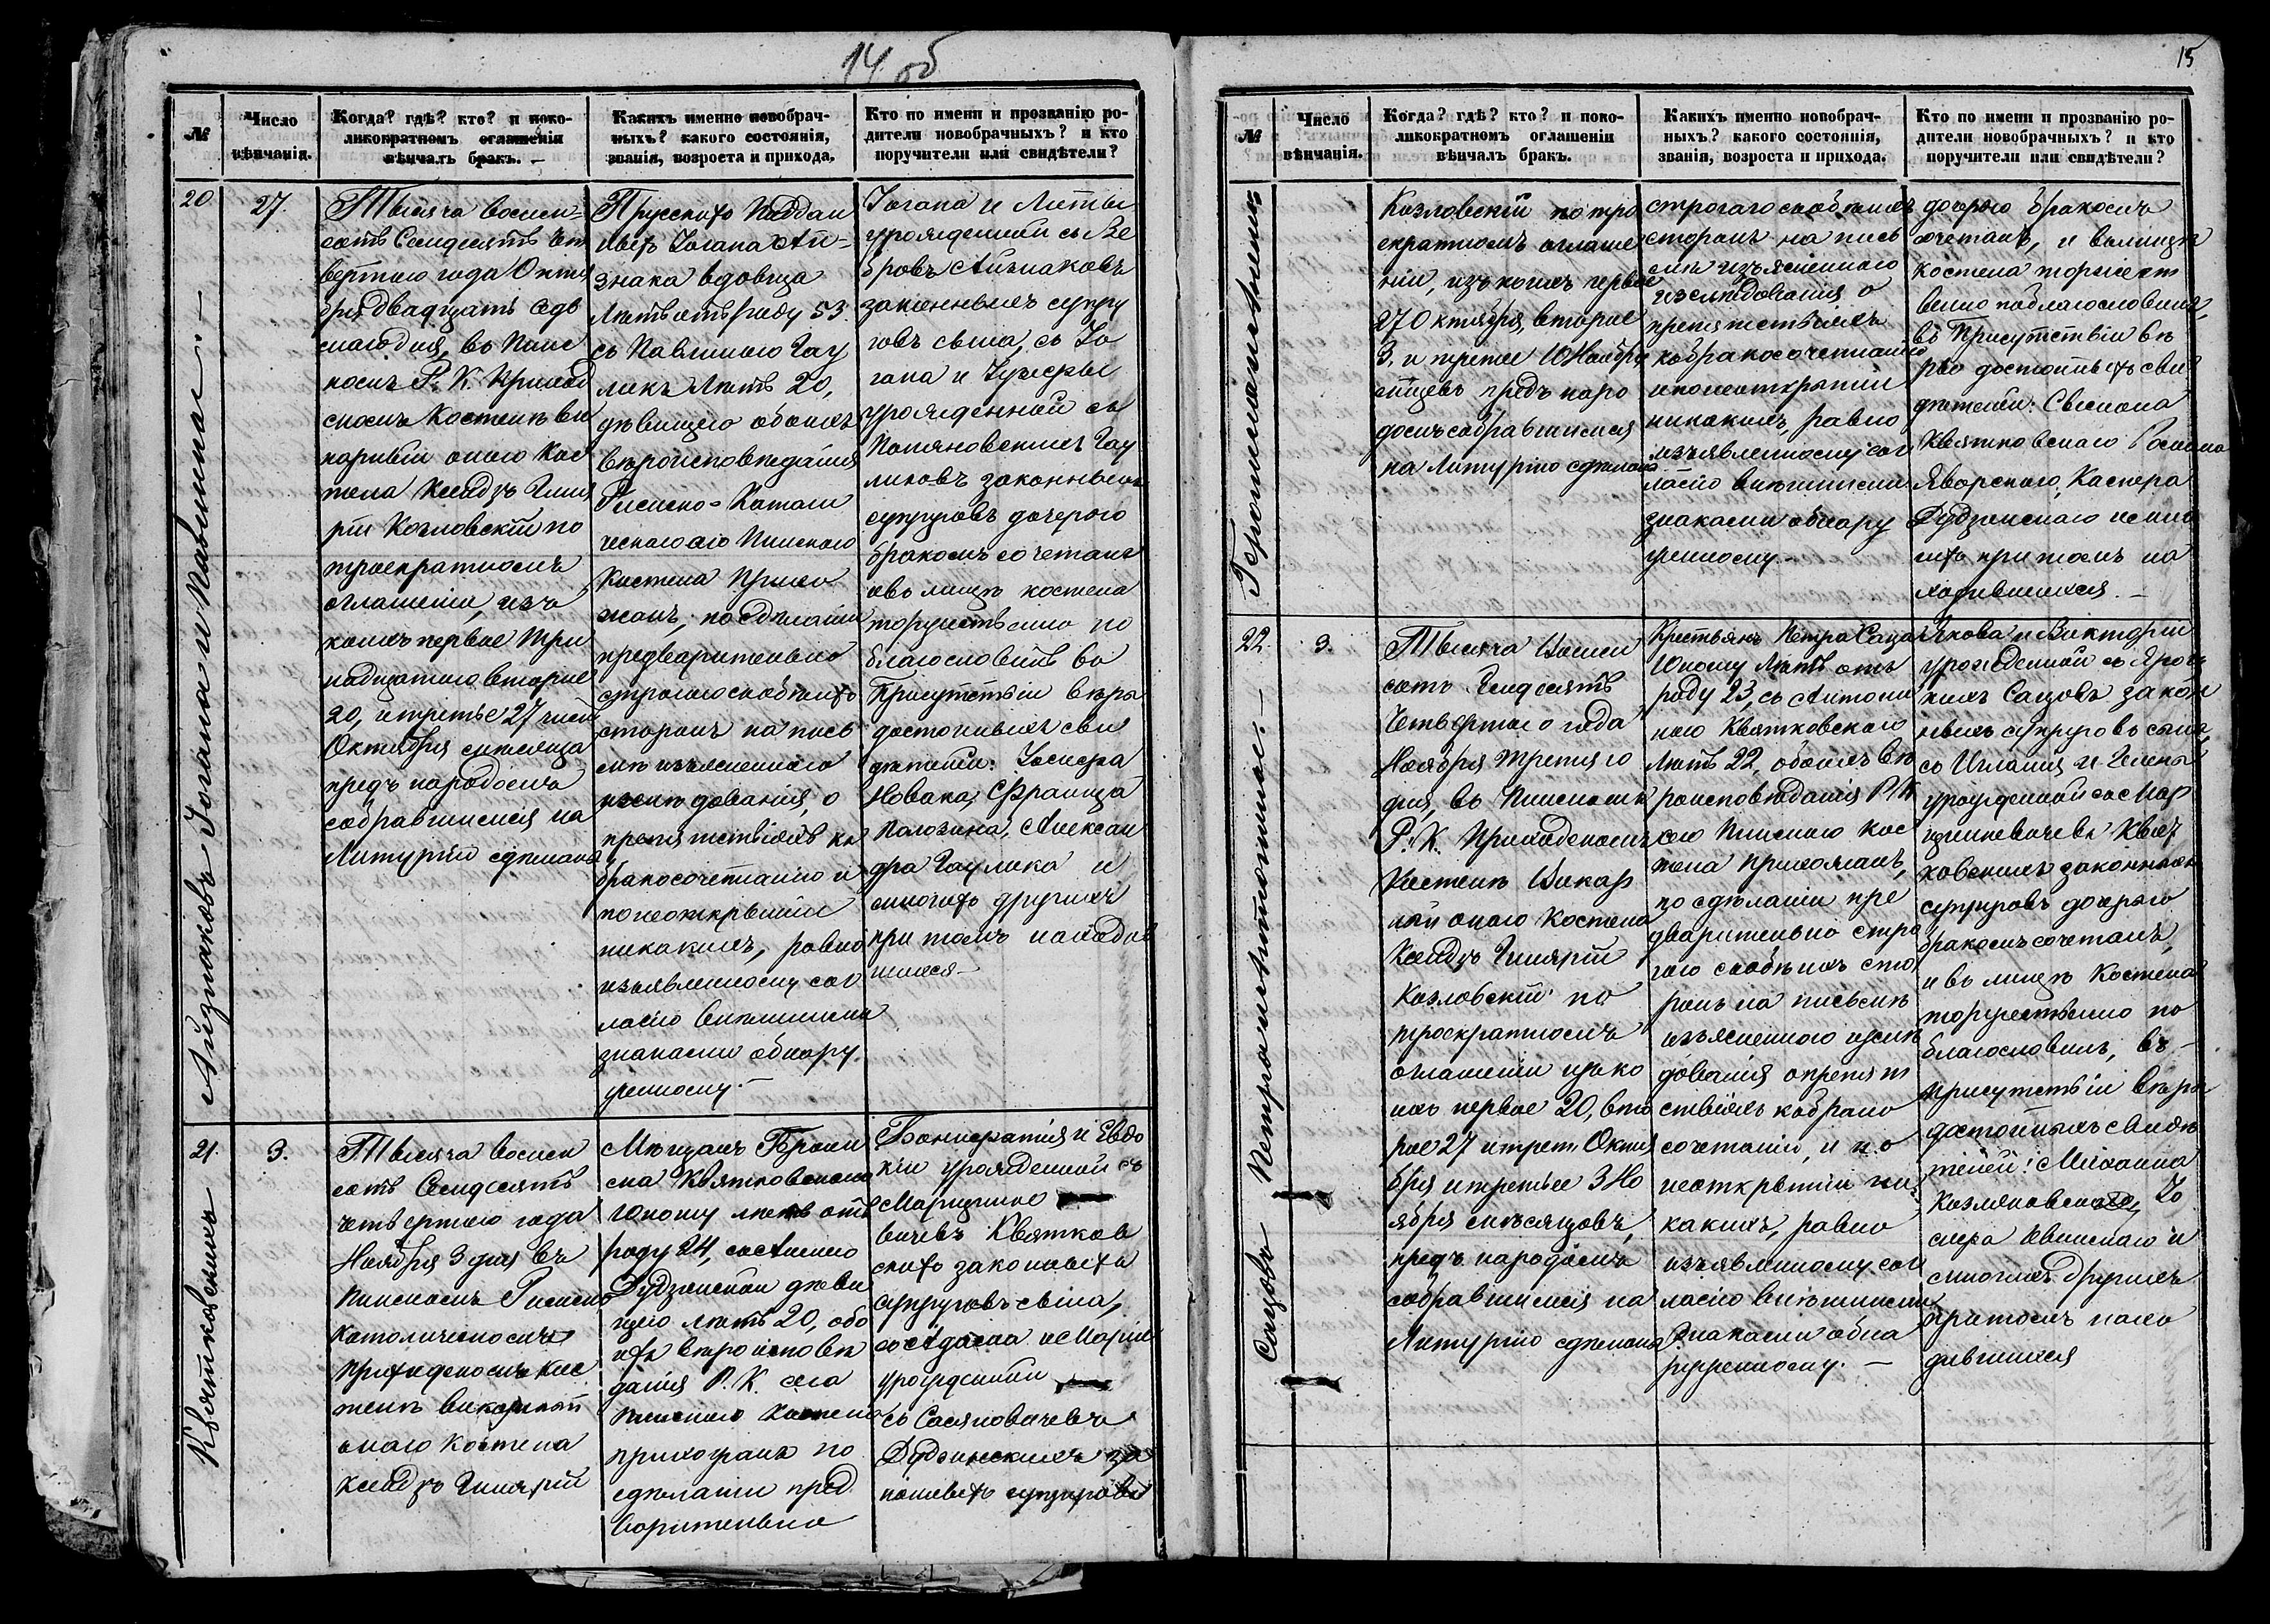 14 об
№
Число
вѣнчанія.
Когда? гдѣ? кто? и поко-
ликократномъ оглашеніи
вѣнчалъ бракъ. —
Какихъ именно новобрач-
ныхъ? какого состоянія,
званія, возроста и прихода.
Кто по имени и прозванію ро-
дители новобрачныхъ? и кто
поручители или свидѣтели?
20
Айзнаковъ Іогана и Павлиною. —
27.
Тысяча восем-
сотъ Семдесятъ чет
вертого года Октя
бря двадцать седь
маго дня, въ Пинс
комъ Р. К. Приход
скомъ Костелѣ ви
карный онаго Кос
тела Ксендзъ Гиля
рій Козловскій по
троекратномъ
оглашеніи, изъ
коихъ первое три
надцатого второе
20, и третье 27 числ
Октября месяца
предъ народомъ
собравшимся на
Литургію сдѣланъ
Прусскихъ Поддан
ныхъ Іогана Ай-
знака вдовца
Лѣтъ отъ роду 53.
съ Павлиною Гау
ликъ Лѣтъ 20,
дѣвицею обоихъ
вѣроисповѣданія
Римско-Катали
ческаго Пинскаго
Костела прихо
жанъ, по сдѣланіи
предварительно
строгаго съ обѣихъ
сторонъ на пись
мѣ изъясненнаго
изслѣдованія, о
препятствіяхъ къ
бракосочетанію и
по неоткрытіи
никакихъ, равно
изъявленному сог
ласію внѣшними
знаками обнару
женному. —
Іогана и Литы
урожденной съ Ве
бровъ Айзнаковъ
законныхъ супру
говъ сына, съ Іо
гана и Іузефы
урожденной съ
Пояновскихъ Гау
ликовъ законныхъ
супруговъ дочерью
бракомъ сочеталъ
и въ лицѣ костела
торжественно по
благословилъ въ
Присутствіи вѣры
достойныхъ сви
дѣтелей: Іосифа
Новака, Франца
Полозина, Алексан
дра Гаулика и
многихъ другихъ
при томъ находив
шихся —
21.
Квятковскихъ
3.
Тысяча восем
сотъ Семдесятъ
четвертого года
Ноября 3 дня въ
Пинскомъ Римско
католическомъ
Приходскомъ кос
телѣ викарный
онаго костела
Ксендзъ Гилярій
Мѣщанъ Брони
сла Квятковскаго
Юношу лѣтъ отъ
роду 24, съ Анною
Дудзинскою дѣви
цею лѣтъ 20, обо
ихъ вѣроисповѣ
данія Р. К. сего
Пинскаго костела
прихожанъ по
сдѣланіи пред
варительно
Бонифатія и Евдо
кіи урожденной съ
Марцинке
вичевъ Квятков
скихъ законныхъ
супруговъ сына,
со Адама и Маріи
урожденной
съ Сасяновичевъ
Дудзинскихъ за
конныхъ супруговъ
15
№
Число
вѣнчанія.
Когда? гдѣ? кто? и поко-
ликократномъ оглашеніи
вѣнчалъ бракъ.
Какихъ именно новобрач-
ныхъ? какого состоянія,
званія, возроста и прихода.
Кто по имени и прозванію ро-
дители новобрачныхъ? и кто
поручители или свидѣтели?
Козловскій по тро
екратномъ оглаше
ніи, изъ коихъ первое
27 Октября, второе
3, и третее 10 Ноября
мѣсяцевъ предъ наро
домъ собравшимся
на Литургію сдѣлано
строгаго съ обѣихъ
сторонъ на пись
мѣ изъясненнаго
изслѣдованія о
препятствіяхъ
къ бракосочетанію
и по неоткрытіи
никакихъ, равно
изъявленному сог
ласію внѣшними
знаками обнару
женному. —
дочерью бракомъ
сочеталъ, и въ лицѣ
костела торжест
венно поблагословилъ,
въ Присутствіи вѣ
ры достойныхъ сви
дѣтелей: Симона
Квятковскаго
Яворскаго, Каспера
Дудзинскаго и мно
гихъ при томъ на
ходившихся. —
22.
Сацовъ Петра и Антониною. —
3.
Тысяча Восем
сотъ Семдесятъ
Четвертого года
Ноября третяго
дня, въ Пинскомъ
Р. К. Приходскомъ
Костелѣ Викар
ный онаго Костела
Ксендзъ Гилярій
Козловскій по
троекратномъ
оглашеніи изъ ко
ихъ первое 20, вто
рое 27 и трет. Октя
бря и третье 3 Но
ября мѣсяцовъ,
предъ народомъ
собравшимся на
Литургію сдѣланъ
Крестьянъ Петра Саца
Юношу Лѣтъ отъ
роду 23, съ Антони
ною Квятковскою
Лѣтъ 22, обоихъ вѣ
роисповѣданія Р. К.
сего Пинскаго кос
тела прихожанъ,
по сдѣланіи пре
дварительно стро
гаго съ обѣихъ сто
ронъ на письмѣ
изъясненнаго изслѣ
дованія о препят
ствіяхъ къ брако
сочетанію, и по
неоткрытіи ни
какихъ, равно
изъявленному сог
ласію внѣшними
знаками обна
руженному. —
Якова и Викторіи
урожденной съ Яроц
кихъ Сацовъ закон
ныхъ супруговъ сына,
со Игнатія и Гелены
урожденной съ Мар
цинкевичевъ Квят
ковскихъ законныхъ
супруговъ дочерью
бракомъ сочеталъ,
и въ лицѣ Костела
торжественно по
благословилъ, въ
присутствіи вѣры
достойныхъ свидѣ
телей: Михаила
Козляковскаго, Іо
сифа Квинскаго и
многихъ другихъ
притомъ нахо
дившихся